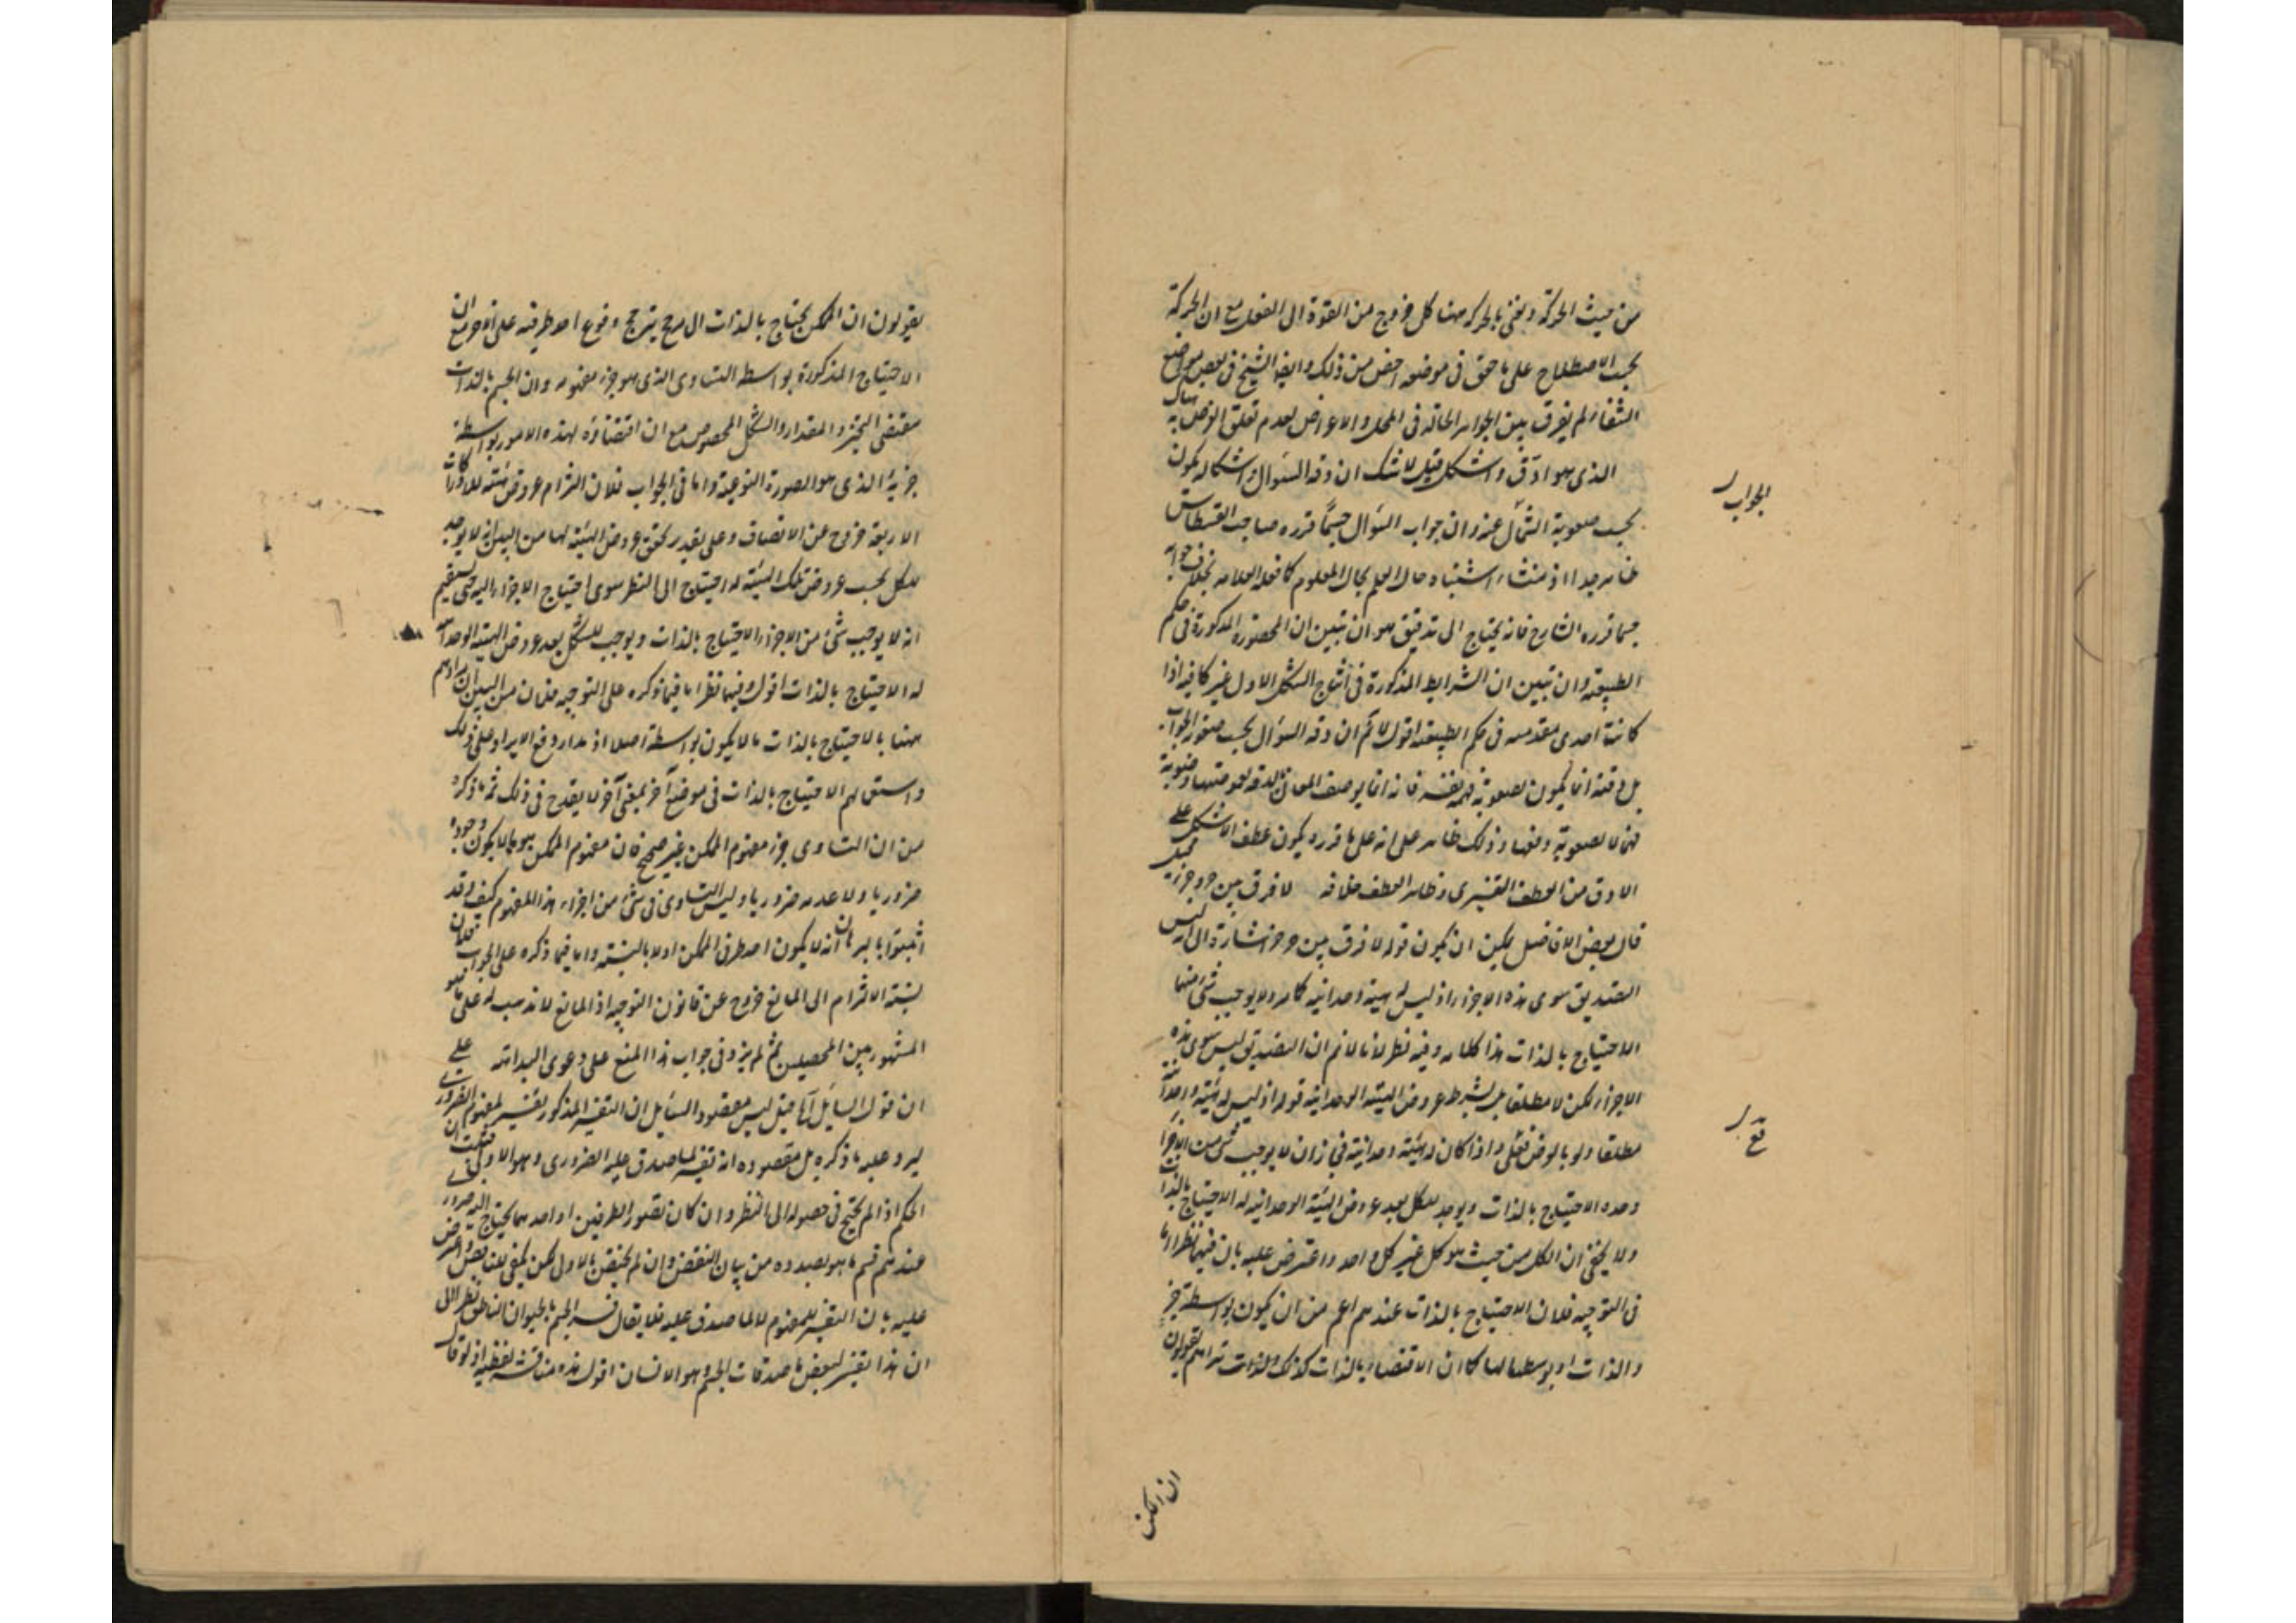 من حيث الحركة ونعنى بالحركة ههنا كل خروج من القوة الى الفعل مع ان الحركة
بحسب الاصطلاح على ما حقق فى موضعه اخص من ذلك وايضا الشيخ فى بعض مواضع
الشفاء لم يفرق بين الجواهر الحالة فى المحل والاعراض لعدم تعلق الغرض به
الذى هو ادق واشكل قيل لا شك ان دقة السؤال واشكاله يكون
الجواب
بحسب صعوبة التمأل عنه وان جواب السؤال حيثما قرره صاحب القسطاس
ظاهر جدا اذ منشاء اشتباه حال العلم بحال المعلوم كما فعله العلامه بخلاف جوابه
حيثما قرره الشارح فانه يحتاج الى تدقيق هو ان تبين ان المحصورة المذكورة فى حكم
الطبيعة وان تبين ان الشرايط المذكورة فى انتاج الشكل الاول غير كافية اذا
كانت احدى مقدمتيه فى حكم الطبيعة اقول لا نم ان دقة السؤال بحسب صعوبة الجواب
بل دقته انما يكون لصعوبة فهمه نفسه فانه انما يوصف المعانى بالدقة لغموضها وصعوبة
فهمها لا لصعوبة دفعها وذلك ظاهر على انه على ما قرره يكون عطف الاشكل على
الادق من العطف التفسيرى وظاهر العطف خلافه لا فرق بين
قال بعض الافاضل يمكن ان يكون قوله لا فرق بين اشارة الى انه ليس
التصديق سوى هذه الاجزاء اذ ليس له هيئة وحدانيه كما مر ولا يوجب شئ منها
الاحتياج بالذات هذا كلامه وفيه نظر لانا لا نم ان التصديق ليس سوى هذه
الاجزاء لكن لا مطلقا بل بشرط عروض الهيئة الوحدانية قوله اذ ليس له هيئة وحدانية
مطلقا ولو بالعرض فعلى واذا كان له هيئة وحدانية فى زان لا يوجب شئ من الاجزاء
وحده الاحتياج بالذات ويوجد للكل بعد عروض الهيئة الوحدانيه له الاحتياج بالذات
ولا يخفى ان الكل من حيث هو كل غير كل واحد واعترض عليه بان فيهما نظرا اما
فى التوجيه فلان الاحتياج بالذات عندهم اعم من ان يكون بواسطة جزء
والذات او بوسطهما لها كما ان الاقتضاء بالذات كذلك ولذلك تراهم يقولون
ان الممكن
يقولون ان الممكن يحتاج بالذات الى مرجح يترجح وقوع احد طرفيه على الاخر مع ان
الاحتياج المذكورة بواسطة التساوى الذى هو جزء مفهومه وان الجسم بالذات
مقتضى التحيز والمقدار والشكل المخصوص مع ان اقتضاؤه لهذه الامور بواسطة
جزئية الذى هو الصورة النوعية واما فى الجواب فلان التزام عروض هيئة للادراكات
الاربعة خروج عن الانصاف وعلى تقدير تحقق عروض الهيئة لها من البين انه لا يوجد
للكل بحسب عروض تلك الهيئة له احتياج الى النظر سوى احتياج الاجزاء اليه حتى يستقيم
انه لا يوجب شئ من الاجزاء الاحتياج بالذات ويوجب للكل بعد عروض الهيئة الوحدانية
له الاحتياج بالذات اقول وفيهما نظر اما فيما ذكره على التوجيه فلان من البين ان مرادهم
ههنا بالاحتياج بالذات ما لا يكون بواسطة اصلا اذ مدار دفع الايراد على ذلك
واستعمالهم الاحتياج بالذات فى موضع آخر بمعنى آخر لا يقدح فى ذلك ثم ما ذكره
من ان التساوى جزء مفهوم الممكن غير صحيح فان مفهوم الممكن هو ما لا يكون وجوده
ضروريا ولا عدمه ضروريا وليس التساوى فى شئ من اجزاء هذا المفهوم كيف وقد
اثبتوا بالبرهان انه لا يكون احد طرفى الممكن اولا بالنسبة واما فيما ذكره على الجواب فلان
نسبة الالتزام الى المانع خروج عن قانون التوجيه اذ المانع لا مذهب له على ما هو
المشهور بين المحصلين ثم لم يزد فى جواب هذا المنع على دعوى البداهة على
ان قول السايل آه قيل ليس مقصود السايل ان التفسير المذكور تفسير لمفهوم الضرورى
ليرد عليه ما ذكره بل مقصوده انه تفسير لما صدق عليه الضرورى وهو الاولى فيثبت ان
الحكم اذا لم يحتج فى حصوله الى النظر وان كان تصور الطرفين او احدهما يحتاج اليه ضرورى
عندهم فتم ما هو بصدده من بيان النقض وان لم ينتقض بالاول لكن يكفى نقض بعض واعترض
عليه بان التفسير للمفهوم لا لما صدق عليه فلا يقال فسر الجسم بالحيوان الناطق نظرا الى
ان هذا تفسير لبعض ما صدقات الجسم وهو الانسان اقول هذه مناقشة لفظية اذ لو قال